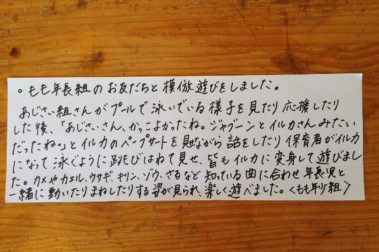 。もも年長組のお友だちと模倣遊びをしました。
あじさい組さんがプールで泳いでいる様子を見たり応援したり
した後、「あじさいさん、かっこよかったね。ジャブーンとイルカさんみたい
だったね。」とイルカのペープサートを見ながら話をしたり保育者がイルカ
になって泳ぐように跳びはねて見せ、皆もイルカに変身して遊びまし
た。カメやカエル、ウサギ、キリン、ゾウ、さるなど知っている曲に合わせ年長児と一
緒に動いたりまねしたりする姿が見られ、楽しく遊べました。〈もも年少組〉